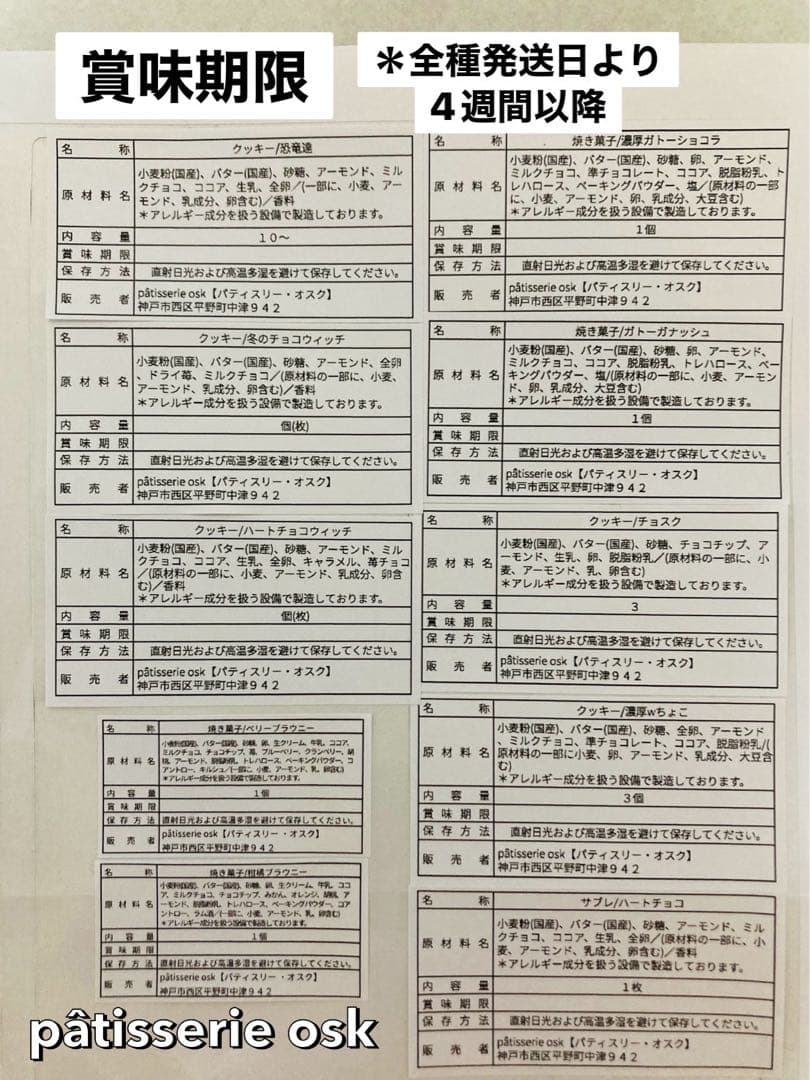 賞味期限
＊全種発送日より
４週間以降
名称 クッキー/恐竜達
原材料名 小麦粉(国産)、バター(国産)、砂糖、アーモンド、ミル
クチョコ、ココア、生乳、全卵／(一部に、小麦、アー
モンド、乳成分、卵含む)／香料
＊アレルギー成分を扱う設備で製造しております。
内容量 １０～
賞味期限
保存方法 直射日光および高温多湿を避けて保存してください。
販売者 pâtisserie osk【パティスリー・オスク】
神戸市西区平野町中津９４２
名称 クッキー/冬のチョコウィッチ
原材料名 小麦粉(国産)、バター(国産)、砂糖、アーモンド、全卵
、ドライ苺、ミルクチョコ／(原材料の一部に、小麦、
アーモンド、乳成分、卵含む)／香料
＊アレルギー成分を扱う設備で製造しております。
内容量 個(枚)
賞味期限
保存方法 直射日光および高温多湿を避けて保存してください。
販売者 pâtisserie osk【パティスリー・オスク】
神戸市西区平野町中津９４２
名称 クッキー/ハートチョコウィッチ
原材料名 小麦粉(国産)、バター(国産)、砂糖、アーモンド、ミル
クチョコ、ココア、生乳、全卵、キャラメル、苺チョコ
／(原材料の一部に、小麦、アーモンド、乳成分、卵含
む)／香料
＊アレルギー成分を扱う設備で製造しております。
内容量 個(枚)
賞味期限
保存方法 直射日光および高温多湿を避けて保存してください。
販売者 pâtisserie osk【パティスリー・オスク】
神戸市西区平野町中津９４２
名称 焼き菓子/ベリーブラウニー
原材料名 小麦粉(国産)、バター(国産)、砂糖、卵、生クリーム、牛乳、ココア、
ミルクチョコ、チョコチップ、苺、ブルーベリー、クランベリー、胡
桃、アーモンド、脱脂粉乳、トレハロース、ベーキングパウダー、コ
アントロー、キルシュ／(一部に、小麦、アーモンド、乳、卵含む)
＊アレルギー成分を扱う設備で製造しております。
内容量 １個
賞味期限
保存方法 直射日光および高温多湿を避けて保存してください。
販売者 pâtisserie osk【パティスリー・オスク】
神戸市西区平野町中津９４２
名称 焼き菓子/柑橘ブラウニー
原材料名 小麦粉(国産)、バター(国産)、砂糖、卵、生クリーム、牛乳、ココ
ア、ミルクチョコ、チョコチップ、みかん、オレンジ、胡桃、ア
ーモンド、脱脂粉乳、トレハロース、ベーキングパウダー、コア
ントロー、ラム酒／(一部に、小麦、アーモンド、乳、卵含む)
＊アレルギー成分を扱う設備で製造しております。
内容量 １個
賞味期限
保存方法 直射日光および高温多湿を避けて保存してください。
販売者 pâtisserie osk【パティスリー・オスク】
神戸市西区平野町中津９４２
名称 焼き菓子/濃厚ガトーショコラ
原材料名 小麦粉(国産)、バター(国産)、砂糖、卵、アーモンド、
ミルクチョコ、準チョコレート、ココア、脱脂粉乳、ト
レハロース、ベーキングパウダー、塩／(原材料の一部
に、小麦、アーモンド、卵、乳成分、大豆含む)
＊アレルギー成分を扱う設備で製造しております。
内容量 １個
賞味期限
保存方法 直射日光および高温多湿を避けて保存してください。
販売者 pâtisserie osk【パティスリー・オスク】
神戸市西区平野町中津９４２
名称 焼き菓子/ガトーガナッシュ
原材料名 小麦粉(国産)、バター(国産)、砂糖、卵、アーモンド、
ミルクチョコ、ココア、脱脂粉乳、トレハロース、ベー
キングパウダー、塩/(原材料の一部に、小麦、アーモン
ド、卵、乳成分、大豆含む)
＊アレルギー成分を扱う設備で製造しております。
内容量 １個
賞味期限
保存方法 直射日光および高温多湿を避けて保存してください。
販売者 pâtisserie osk【パティスリー・オスク】
神戸市西区平野町中津９４２
名称 クッキー/チョスク
原材料名 小麦粉(国産)、バター(国産)、砂糖、チョコチップ、ア
ーモンド、生乳、卵、脱脂粉乳／(原材料の一部に、小
麦、アーモンド、乳、卵含む)
＊アレルギー成分を扱う設備で製造しております。
内容量 ３
賞味期限
保存方法 直射日光および高温多湿を避けて保存してください。
販売者 pâtisserie osk【パティスリー・オスク】
神戸市西区平野町中津９４２
名称 クッキー/濃厚wちょこ
原材料名 小麦粉(国産)、バター(国産)、砂糖、全卵、アーモンド
、ミルクチョコ、準チョコレート、ココア、脱脂粉乳/(
原材料の一部に小麦、卵、アーモンド、乳成分、大豆含
む)
＊アレルギー成分を扱う設備で製造しております。
内容量 ３個
賞味期限
保存方法 直射日光および高温多湿を避けて保存してください。
販売者 pâtisserie osk【パティスリー・オスク】
神戸市西区平野町中津９４２
名称 サブレ/ハートチョコ
原材料名 小麦粉(国産)、バター(国産)、砂糖、アーモンド、ミル
クチョコ、ココア、生乳、全卵／(原材料の一部に、小
麦、アーモンド、乳成分、卵含む)／香料
＊アレルギー成分を扱う設備で製造しております。
内容量 １枚
賞味期限
保存方法 直射日光および高温多湿を避けて保存してください。
販売者 pâtisserie osk【パティスリー・オスク】
神戸市西区平野町中津９４２
pâtisserie osk